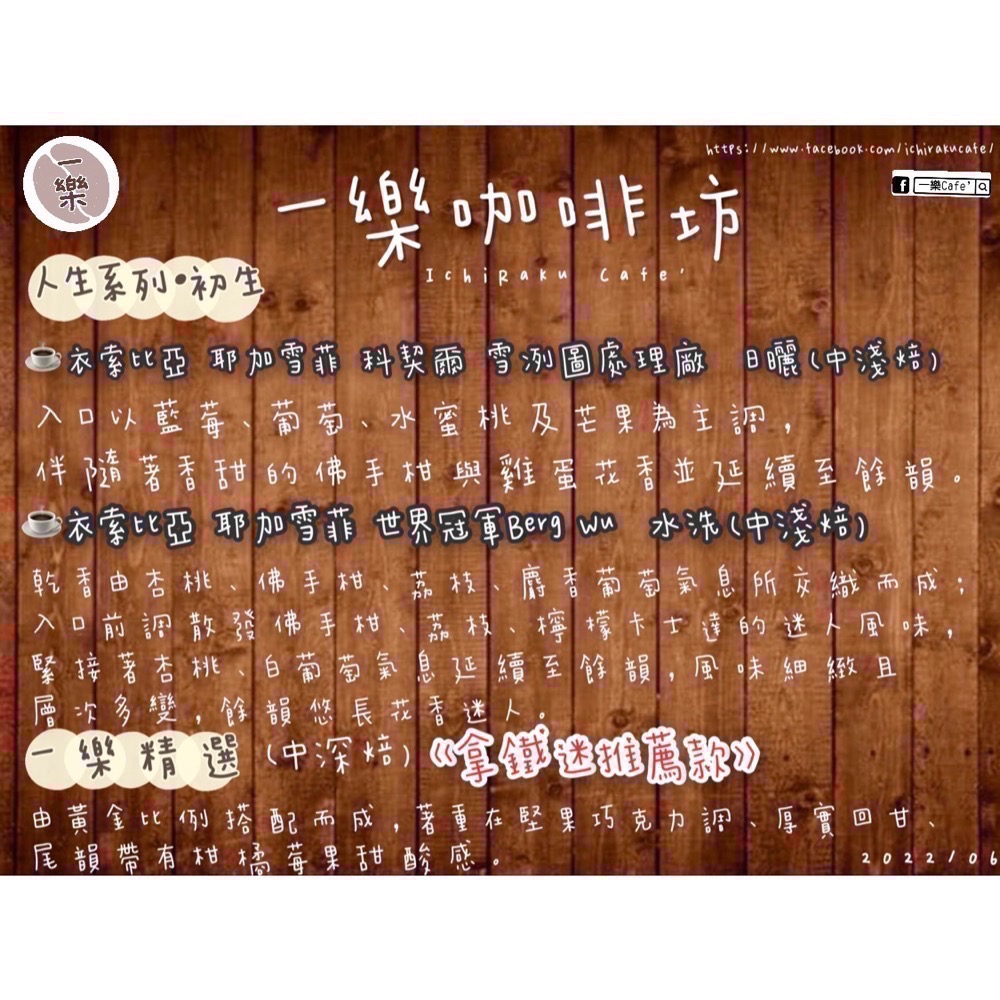 一樂
https://www.facebook.com/ichirakucafe/
一樂Cafe'
一樂咖啡坊
IchiRaku Cafe'
人生系列•初生
衣索比亞 耶加雪菲 科契爾 雪冽圖處理廠 日曬(中淺焙)
入口以藍莓、葡萄、水蜜桃及芒果為主調,
伴隨著香甜的佛手柑與雞蛋花香並延續至餘韻。
衣索比亞 耶加雪菲 世界冠軍Berg Wu 水洗(中淺焙)
乾香由杏桃、佛手柑、荔枝、麝香葡萄氣息所交織而成;
入口前調散發佛手柑、荔枝、檸檬卡士達的迷人風味,
緊接著杏桃、白葡萄氣息延續至餘韻,風味細緻且
層次多變,餘韻悠長花香迷人。
一樂精選 (中深焙) 《拿鐵迷推薦款》
由黃金比例搭配而成,著重在堅果巧克力調、厚實回甘、
尾韻帶有柑橘莓果甜酸感。
2022/06